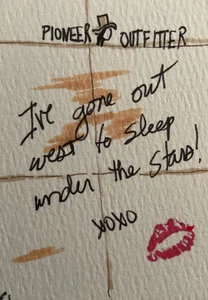 PIONEER OUTFITTER
I've gone out
west to sleep
under the stars!
xoxo